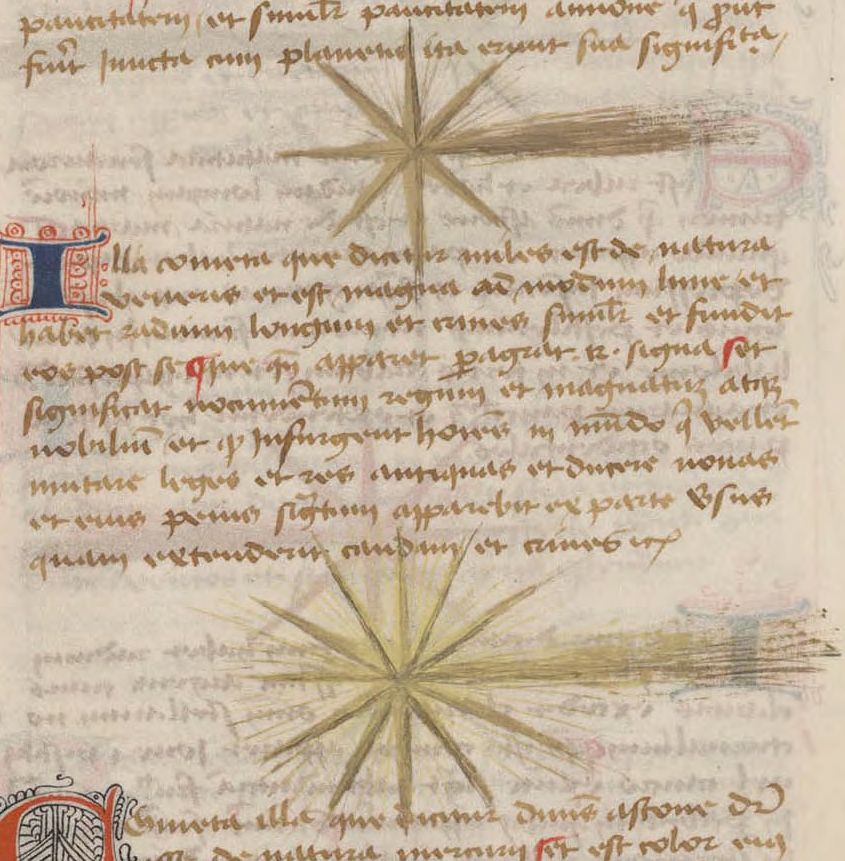 paucitatem et similr paucitatem annone q̄ prout
fuerit Iuncta cum planetis ita erunt sua significta
Illa cometa que dicitur miles est de natura
veneris et est magna ad modum lune et
habet radium longum et crines similr et fundit
eos post se que qn̄ apparet pagrat tr. signa set
significat nocumentum regum et magnatum atque
nobiliū et qp Insurgent hoies in mūdo q̄ vellet
mutare leges et res antiquas et ducere nouas
et eius peius sig̅tum apparebit ex parte vsus
quam extenderit caudam et crines
Cometa illa que dicitur dn̄s ascone dr̄
de natura mercurij set est color eius